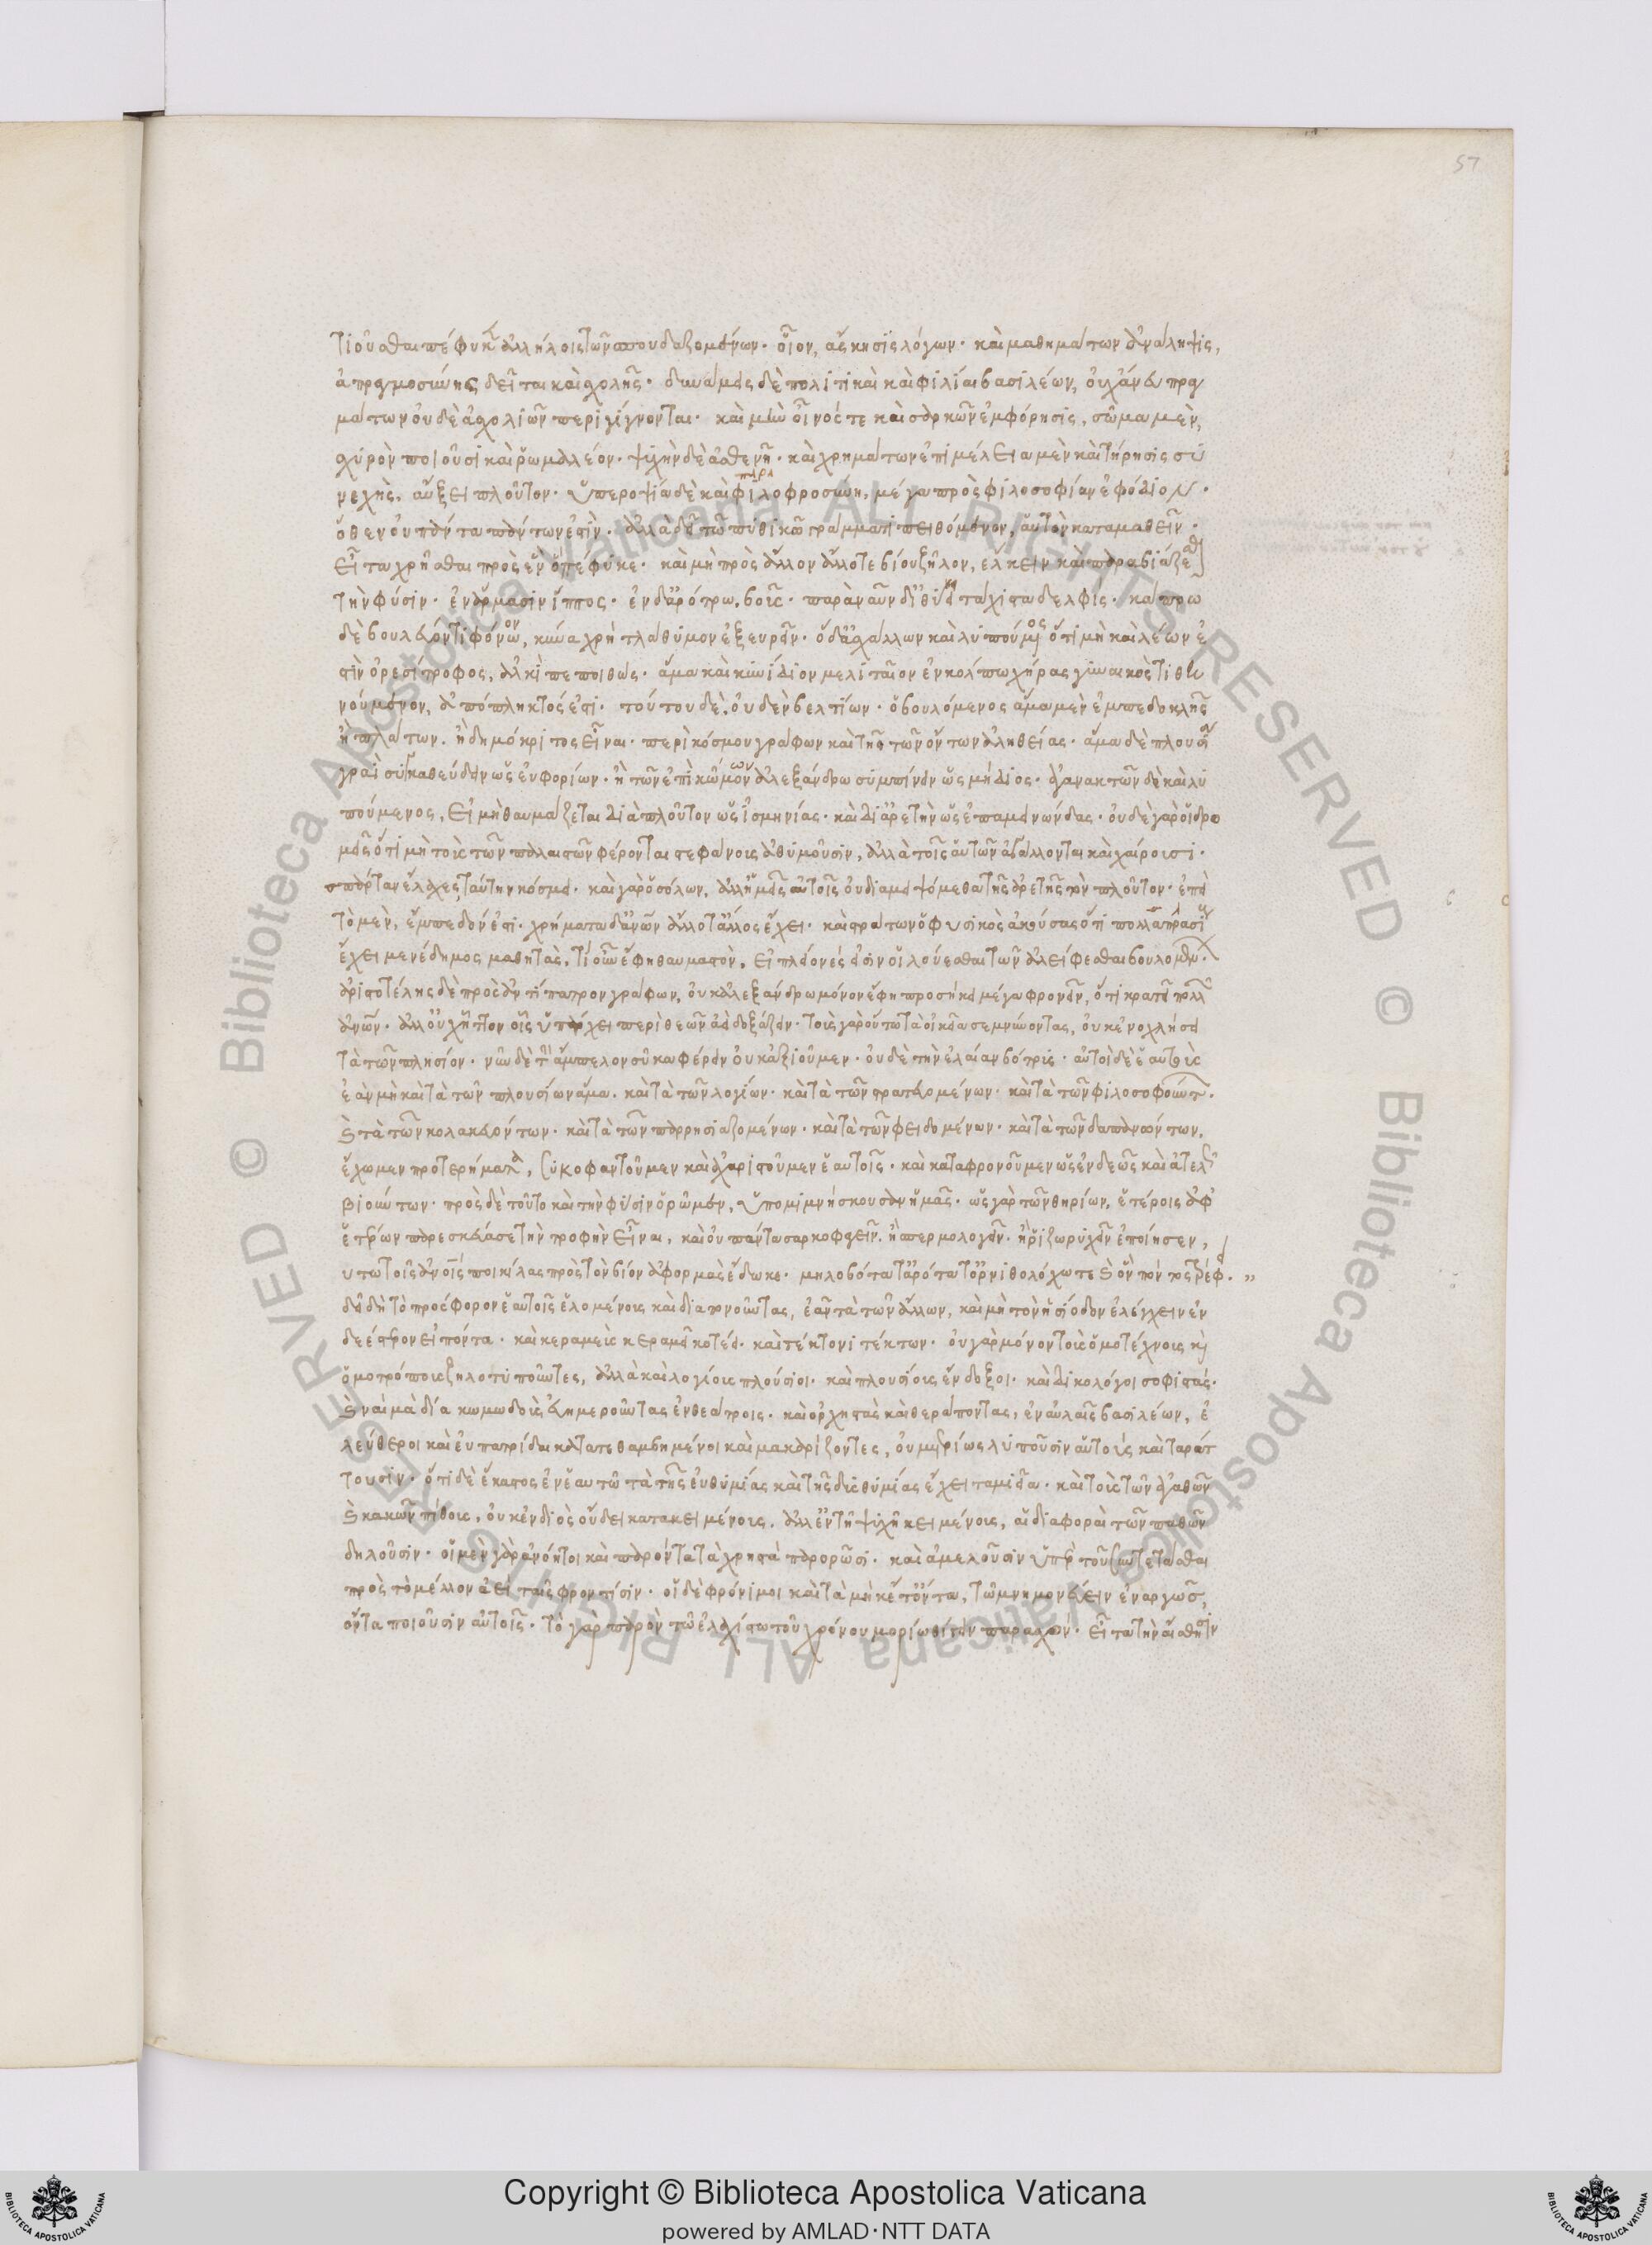 57
τιοῦσθαι πέφυκεν ἀλλήλοις τῶν σπουδαζομένων· οἷον, ἄσκησις λόγων· καὶ μαθημάτων ἀνάληψις,
ἀπραγμοσύνης δεῖται καὶ σχολῆς· δυνάμεις δὲ πολιτικαὶ καὶ φιλίαι βασιλέων, οὐκ ἄνευ πραγ
μάτων οὐδὲ ἀσχολιῶν περιγίγνονται· καὶ μὴν οἶνός τε καὶ σαρκῶν ἐμφόρησις, σῶμα μὲν,
ἰσχυρὸν ποιοῦσι καὶ ῥωμαλέον· ψυχὴν δὲ ἀσθενῆ· καὶ χρημάτων ἐπιμέλεια μὲν καὶ τήρησις συ
νεχὴς, αὔξει πλοῦτον· ὑπεροψία δὲ καὶ φιλοφροσύνη, μέγα πρὸς φιλοσοφίαν ἐφόδιον·
ὅθεν οὐ πάντα πάντων ἐστὶν· ἀλλὰ δεῖ τῶ πυθικῶ γράμματι πειθόμενον, αὑτὸν καταμαθεῖν·
εἶτα χρῆσθαι πρὸς ἓν ὃ πέφυκε· καὶ μὴ πρὸς ἄλλον ἄλλοτε βίου ζῆλον, ἕλκειν καὶ παραβιάζεσθαι
τὴν φύσιν· ἐν ἅρμασιν ἵππος· ἐν δ' ἀρότρω, βοῦς· παρὰ ναῦν δ' ἰθύει τάχιστα δελφίς· κάπρω
δὲ βουλεύοντι φόνον, κύνα χρὴ τλάθυμον ἐξευρεῖν· ὁ δ' ἀσχάλλων καὶ λυπούμενος ὅτι μὴ καὶ λέων ἐ
στὶν ὀρεσίτροφος, ἀλκὶ πεποιθὼς· ἅμα καὶ κυνίδιον μελιταῖον ἐν κόλπω χήρας γυναικὸς τιθη
νούμενον, ἀπόπληκτός ἐστι· τούτου δὲ, οὐδὲν βελτίων· ὁ βουλόμενος ἅμα μὲν ἐμπεδοκλῆς
ἢ πλάτων. ἢ δημόκριτος εἶναι· περὶ κόσμου γράφων καὶ τῆς τῶν ὄντων ἀληθείας· ἅμα δὲ πλουσία
γραὶ συγκαθεύδειν ὡς εὐφορίων· ἢ τῶν ἐπικώμων ἀλεξάνδρω συμπίνειν ὡς μήδιος· ἀγανακτῶν δὲ καὶ λυ
πούμενος, εἰ μὴ θαυμάζεται διὰ πλοῦτον ὡς ἰσμηνίας· καὶ δι' ἀρετὴν ὡς ἐπαμεινώνδας· οὐδὲ γὰρ οἱ δρο
μεῖς ὅτι μὴ τοὺς τῶν παλαιστῶν φέρονται στεφάνους ἀθυμοῦσιν, ἀλλὰ τοῖς αὑτῶν ἀγάλλονται καὶ χαίρουσι·
σπάρταν ἔλαχες, ταύτην κόσμει· καὶ γὰρ ὁ σόλων, ἀλλ' ἡμεῖς αὐτοῖς οὐ διαμειψόμεθα τῆς ἀρετῆς τὸν πλοῦτον· ἐπεὶ
τὸ μὲν, ἔμπεδόν ἐστι· χρήματα δ' ἀνθρώπων ἄλλοτ' ἄλλος ἔχει· καὶ στράτων ὁ φυσικὸς ἀκούσας ὅτι πολλαπλασίους
ἔχει μενέδημος μαθητὰς, τί οὖν ἔφη θαυμαστὸν, εἰ πλείονές εἰσιν οἱ λούεσθαι τῶν ἀλείφεσθαι βουλομένων·
ἀριστοτέλης δὲ πρὸς ἀντίπατρον γράφων, οὐκ ἀλεξάνδρω μόνον ἔφη προσήκει μέγα φρονεῖν, ὅτι κρατεῖ πολλῶν
ἀνθρώπων· ἀλλ' οὐχ ἧττον οἷς ὑπάρχει περὶ θεῶν ἃ δεῖ δοξάζειν· τοὺς γὰρ οὕτω τὰ οἰκεῖα σεμνύνοντας, οὐκ ἐνοχλήσει
τὰ τῶν πλησίον· νῦν δὲ τὴν ἄμπελον σῦκα φέρειν οὐκ ἀξιοῦμεν· οὐδὲ τὴν ἐλαίαν βότρυς· αὐτοὶ δὲ ἑαυτοὺς
ἐὰν μὴ καὶ τὰ τῶν πλουσίων ἅμα. καὶ τὰ τῶν λογίων· καὶ τὰ τῶν στρατευομένων· καὶ τὰ τῶν φιλοσοφούντων.
καὶ τὰ τῶν κολακευόντων· καὶ τὰ τῶν παρρησιαζομένων· καὶ τὰ τῶν φειδομένων· καὶ τὰ τῶν δαπανώντων,
ἔχωμεν προτερήματα, συκοφαντοῦμεν καὶ ἀχαριστοῦμεν ἑαυτοῖς· καὶ καταφρονοῦμεν ὡς ἐνδεῶς καὶ ἀτελῶς
βιούντων· πρὸς δὲ τοῦτο καὶ τὴν φύσιν ὁρῶμεν, ὑπομιμνήσκουσαν ἡμᾶς· ὡς γὰρ τῶν θηρίων, ἑτέροις ἀφ'
ἑτέρων παρεσκεύασε τὴν τροφὴν εἶναι, καὶ οὐ πάντα σαρκοφαγεῖν. ἢ σπερμολογεῖν. ἢ ῥιζωρυχεῖν ἐποίησεν,
οὕτω τοῖς ἀνθρώποις ποικίλας πρὸς τὸν βίον ἀφορμὰς ἔδωκε· μηλοβότα τ' ἀρότα τ' ὀρνιθολόχω τε καὶ ὃν πόντος τρέφει. ”
δεῖ δὴ τὸ πρόσφορον ἑαυτοῖς ἑλομένους καὶ διαπονοῦντας, ἐᾶν τὰ τῶν ἄλλων, καὶ μὴ τὸν ἡσίοδον ἐλέγχειν ἐν
δεέστερον εἰπόντα· καὶ κεραμεὺς κεραμεῖ κοτέει· καὶ τέκτονι τέκτων· οὐ γὰρ μόνον τοὺς ὁμοτέχνους καὶ
ὁμοτρόπους ζηλοτυποῦντες, ἀλλὰ καὶ λογίους πλούσιοι· καὶ πλουσίους ἔνδοξοι· καὶ δικολόγοι σοφιστάς·
καὶ ναὶ μὰ δία κωμωδοὺς εὐημεροῦντας ἐν θεάτροις· καὶ ὀρχηστὰς καὶ θεράποντας, ἐν αὐλαῖς βασιλέων, ἐ
λεύθεροι καὶ εὐπατρίδαι κατατεθαμβημένοι καὶ μακαρίζοντες, οὐ μετρίως λυποῦσιν αὑτοὺς καὶ ταράτ
τουσιν· ὅτι δὲ ἕκαστος ἐν ἑαυτῶ τὰ τῆς εὐθυμίας καὶ τῆς δυσθυμίας ἔχει ταμιεῖα· καὶ τοὺς τῶν ἀγαθῶν
καὶ κακῶν πίθους, οὐκ ἐν διὸς οὔδει κατακειμένους. ἀλλ' ἐν τῆ ψυχῆ κειμένους, αἱ διαφοραὶ τῶν παθῶν
δηλοῦσιν· οἱ μὲν γὰρ ἀνόητοι καὶ παρόντα τὰ χρηστὰ παρορῶσι· καὶ ἀμελοῦσιν ὑπὸ τοῦ συντετάσθαι
πρὸς τὸ μέλλον ἀεὶ ταῖς φροντίσιν· οἱ δὲ φρόνιμοι καὶ τὰ μηκέτ' ὄντα, τῶ μνημονεύειν ἐναργῶς,
ὄντα ποιοῦσιν αὑτοῖς· τὸ γὰρ παρὸν τῶ ἐλαχίστω τοῦ χρόνου μορίω θίγειν παρασχὸν· εἶτα τὴν αἴσθησιν
Copyright © Biblioteca Apostolica Vaticana
powered by AMLAD·NTT DATA